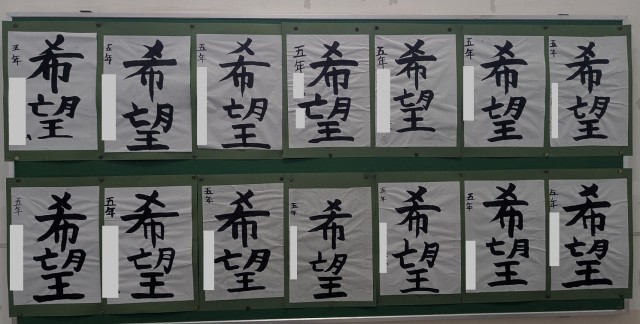 五年
希望
五年
希望
五年
希望
五年
希望
五年
希望
五年
希望
五年
希望
五年
希望
五年
希望
五年
希望
五年
希望
五年
希望
五年
希望
五年
希望